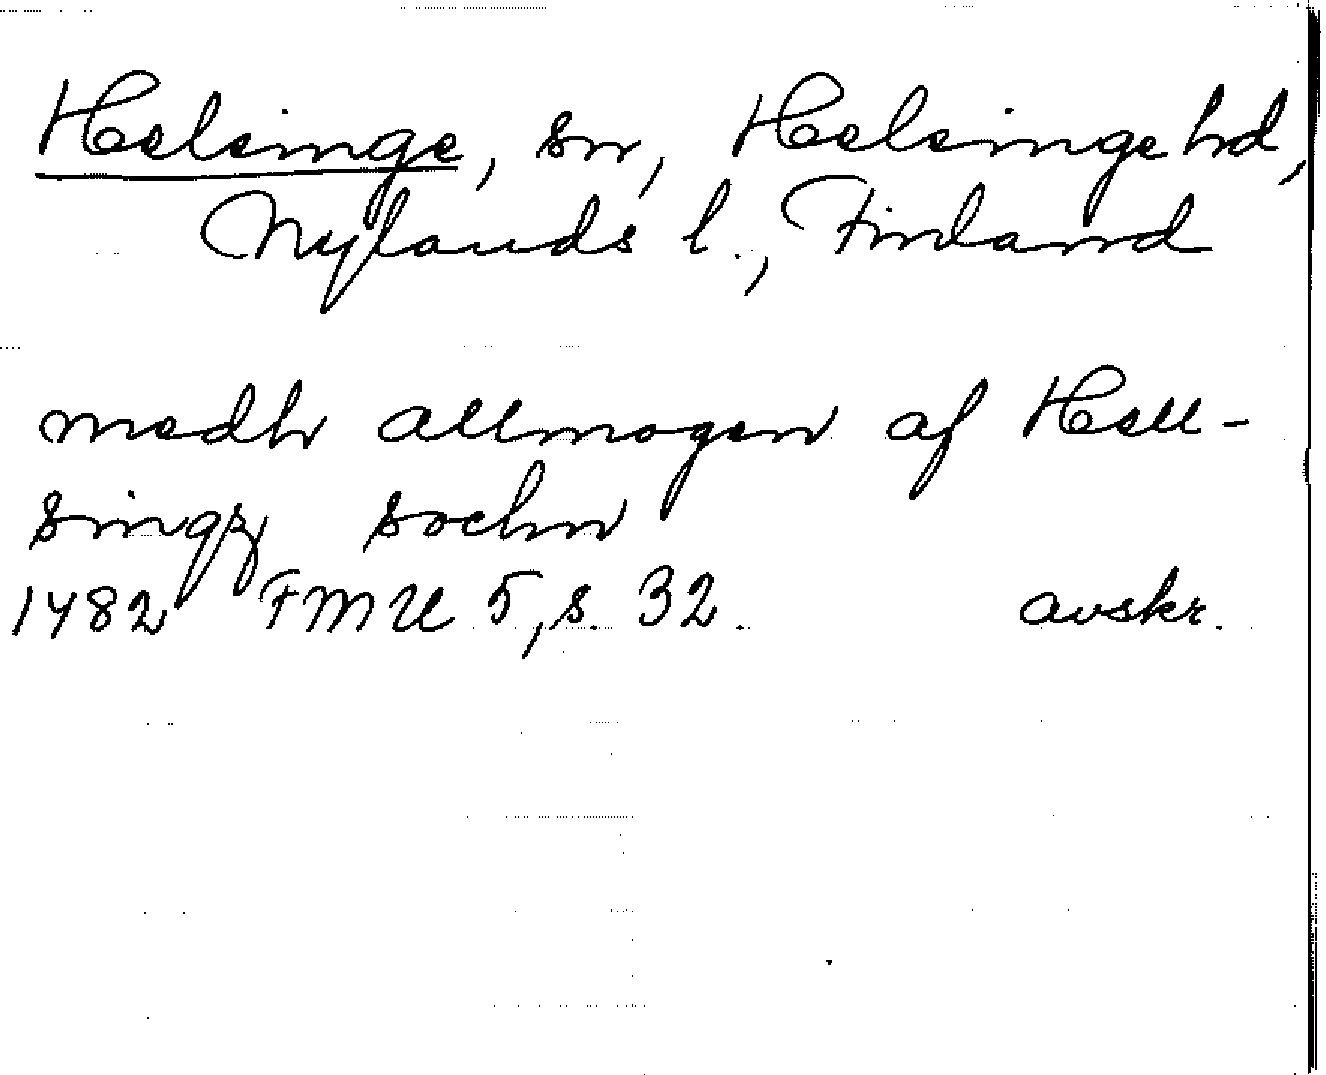 Helsinge, sn, Helsinge hd,
Nylands l., Finland
medh allmogen af Hell-
singz sochn
1482 FMU 5, s. 32. avskr.